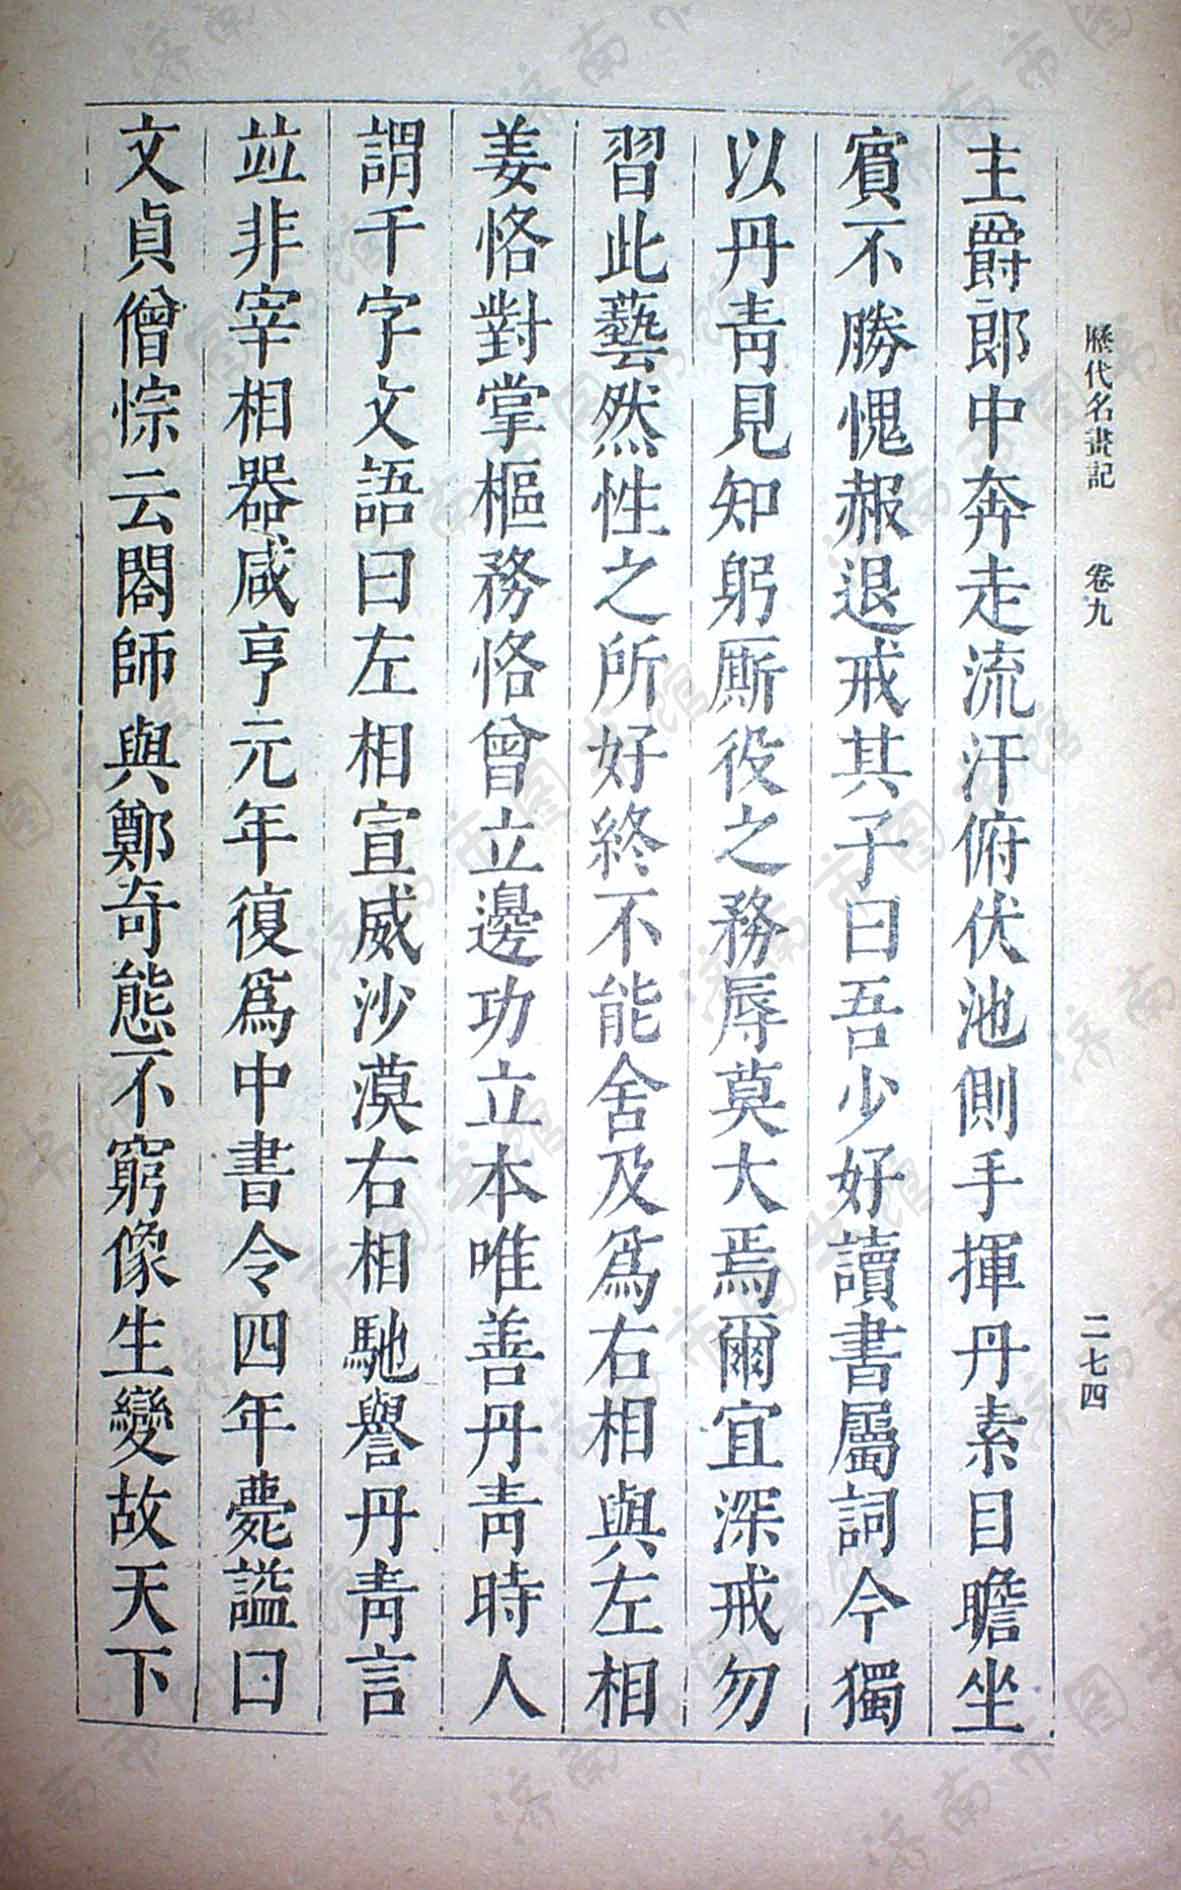 歷代名畫記　卷九　二七四
主爵郎中奔走流汗俯伏池側手揮丹素目瞻坐
賓不勝愧赧退戒其子曰吾少好讀書屬詞今獨
以丹青見知躬厮役之務辱莫大焉爾宜深戒勿
習此藝然性之所好終不能舍及爲右相與左相
姜恪對掌樞務恪曾立邊功立本唯善丹青時人
謂千字文語曰左相宣威沙漠右相馳譽丹青言
並非宰相器咸亨元年復爲中書令四年薨謚曰
文貞僧悰云閻師與鄭奇態不窮像生變故天下
济南市图书馆